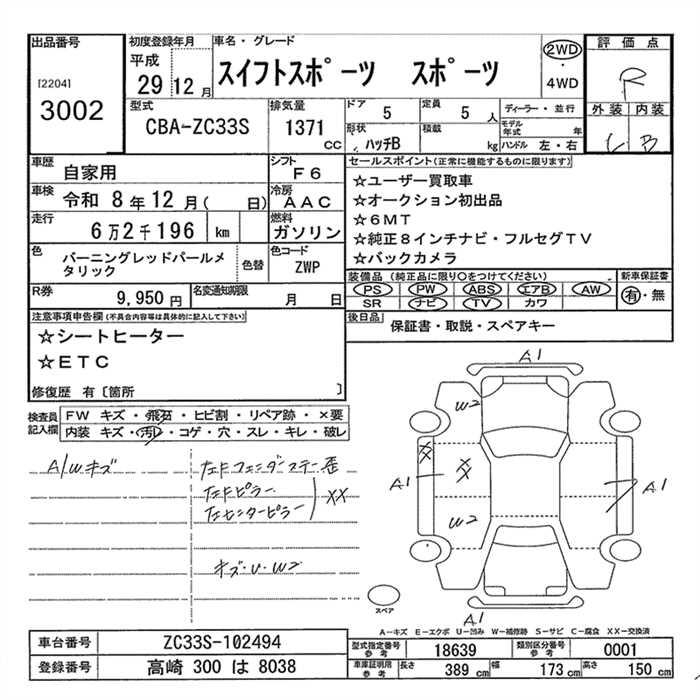 出品番号
[2204]
3002
初度登録年月
平成
29 12月
車名・グレード
スイフトスポーツ スポーツ
2WD
・
4WD
評価点
R
型式
CBA-ZC33S
排気量
1371
CC
ドア
5
定員
5人
形状
ハッチB
積載
kg
ディーラー・並行
モデル年式 年
ハンドル 左・右
外装 内装
C B
車歴
自家用
シフト
F6
車検
令和 8年12月( 日)
冷房
AAC
走行
6万2千196 km
燃料
ガソリン
色
バーニングレッドパールメタリック
色替
色コード
ZWP
R券
9,950円
名変通知期限
月 日
セールスポイント(正常に機能するものに限ります)
☆ユーザー買取車
☆オークション初出品
☆6MT
☆純正8インチナビ・フルセグTV
☆バックカメラ
装備品 (純正品に限り○をつけてください)
PS PW ABS エアB AW
SR ナビ TV カワ
新車保証書
有・無
後日品
保証書・取説・スペアキー
注意事項申告欄(不具合内容等は具体的に記入して下さい)
☆シートヒーター
☆ETC
修復歴 有〔箇所 〕
検査員記入欄
FW キズ・飛石・ヒビ割・リペア跡・×要
内装 キズ・汚れ・コゲ・穴・スレ・キレ・破レ
A/Wキズ
左Fフェンダーステー歪
左Fピラー
左センターピラー
XX
キズ・U・W2
A1
W2
XX
XX
A1
A1
W2
A1
スペア
A-キズ E-エクボ U-凹み W-補修跡 S-サビ C-腐食 XX-交換済
車台番号
ZC33S-102494
登録番号
高崎 300 は 8038
型式指定番号
参考
18639
類別区分番号
参考
0001
車庫証明用
参考
長さ
389 cm
幅
173 cm
高さ
150 cm